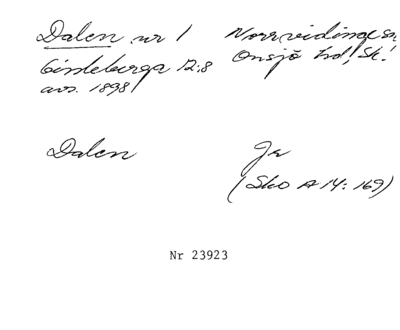 Dalen nr 1 Norrvidinge sn
Lindeberga 12:8 Onsjö hd, Sk.
avs. 1898
Dalen Jr
(Sko A 14: 169)
Nr 23923